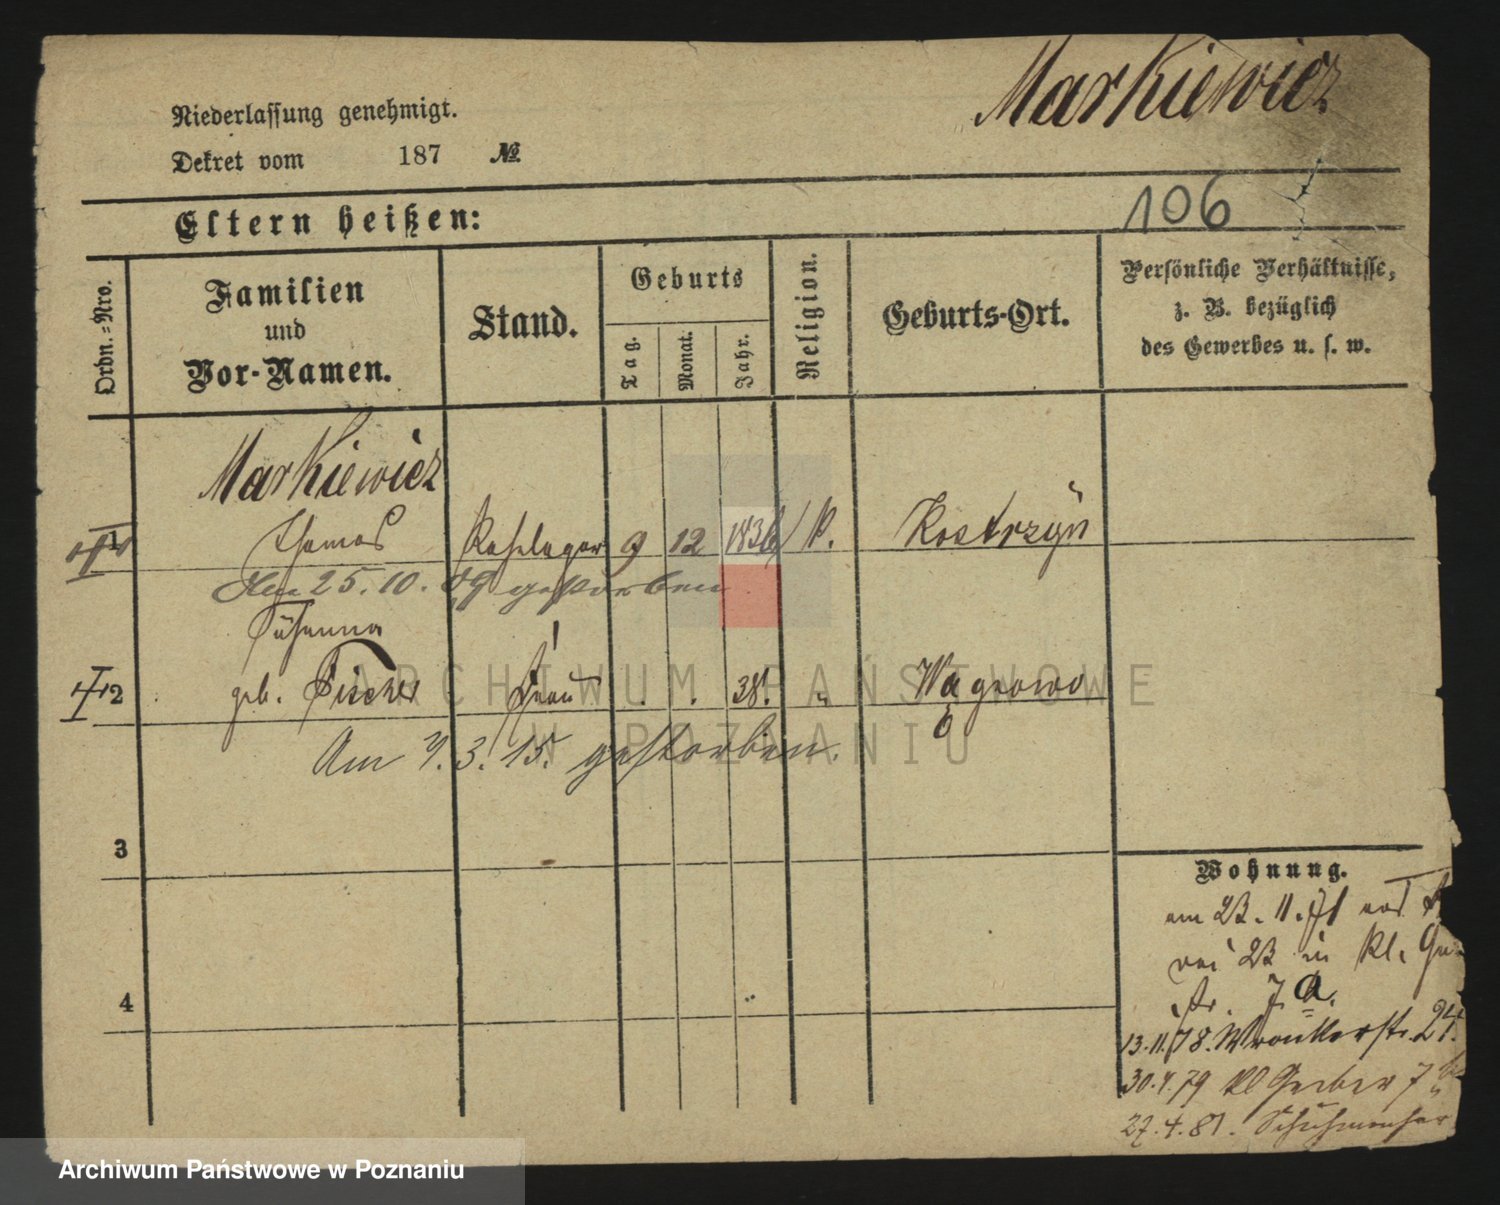 Markiewicz
Niederlassung genehmigt.
Dekret vom 187 №
106
Eltern heißen:
Ordn.=Nro.
Familien
und
Vor-Namen.
Stand.
Geburts
Tag.
Monat.
Jahr.
Religion.
Geburts-Ort.
Persönliche Verhältnisse,
z. B. bezüglich
des Gewerbes u. s. w.
Markiewicz
1 Thomas 9 12 1836 K. Kostrzyn
Am 25. 10. 09 gestorben
Susanna
2 geb. Fischer Frau 38. Wagrowo
Am 7. 3. 15. gestorben.
3
4
Wohnung.
am 23. 11. 71
in Kl.
13.11.78. Wronkerstr. 24.
30.4.79 Kl Gerber 7
27.4.81. Schuhmacher
ARCHIWUM PAŃSTWOWE
W POZNANIU
Archiwum Państwowe w Poznaniu